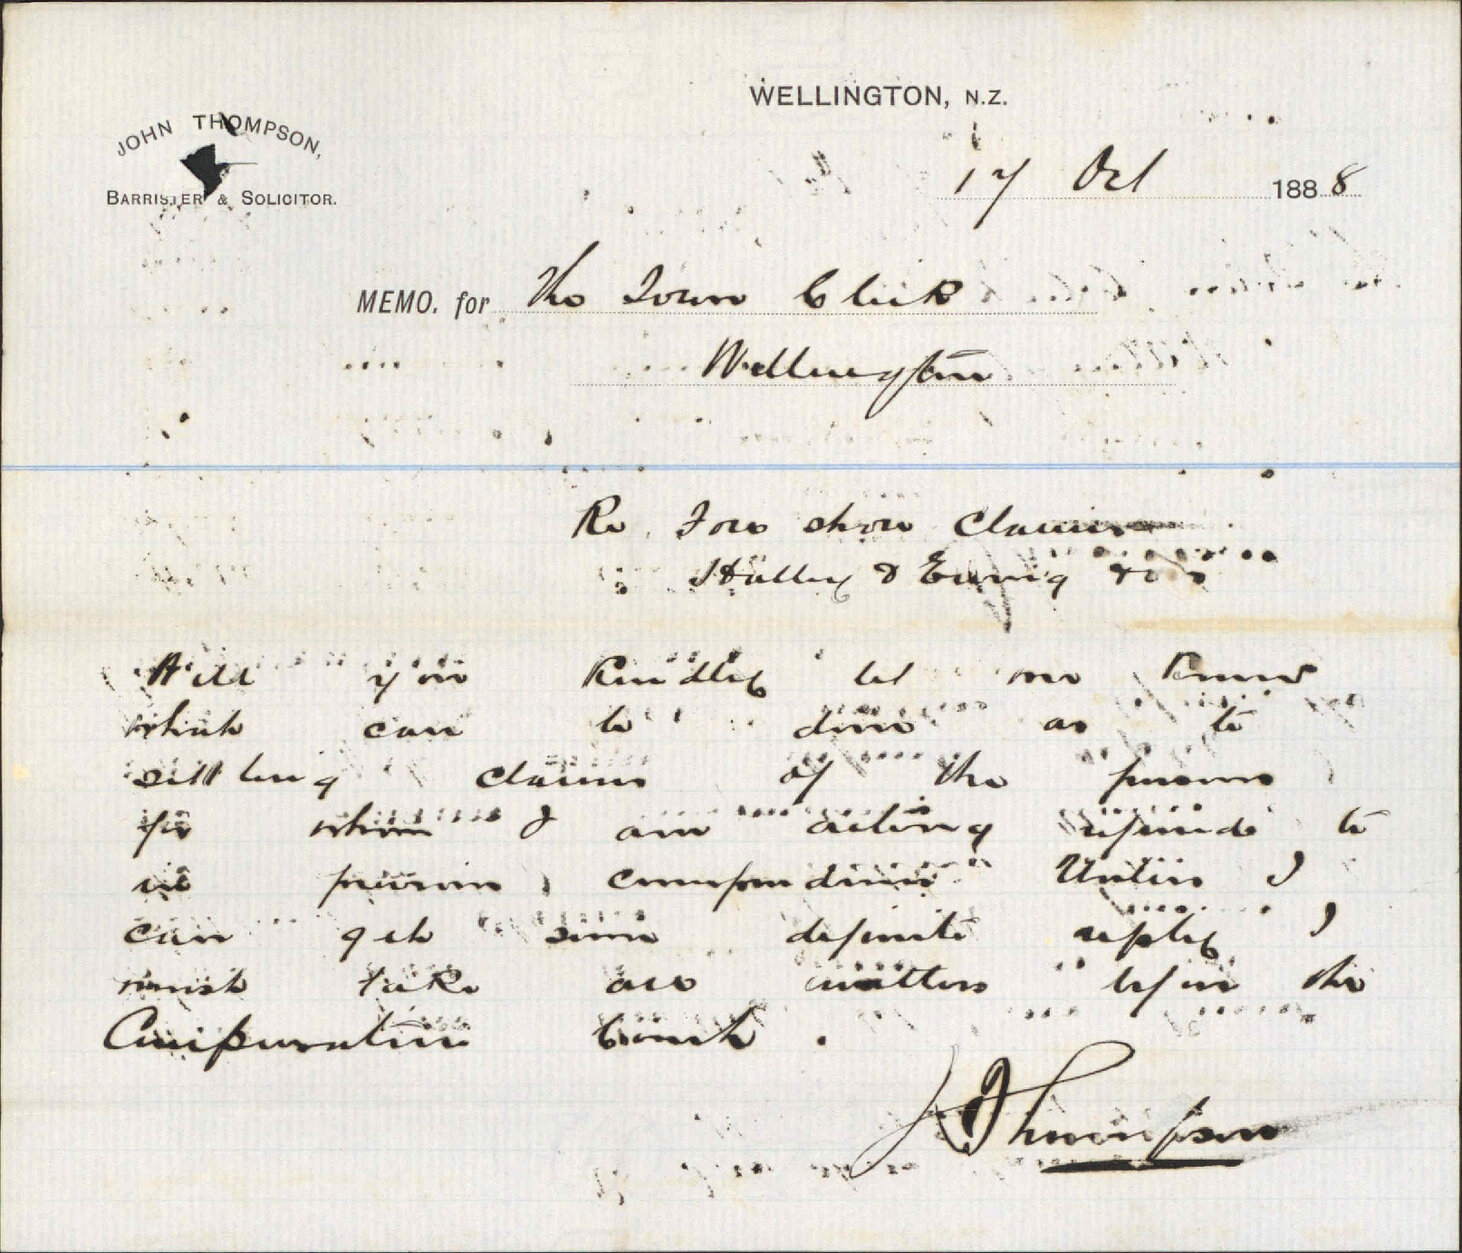 WELLINGTON, N.Z.
JOHN THOMPSON,
BARRISTER & SOLICITOR.
17 Oct 1888
MEMO. for The Town Clerk
Wellington
Re Fore shore Claims
&
Will you Kindly let me Know
which can be done as to
settling claims of the persons
for whom I am acting referred to
in previous correspondence Unless I
can get some definite reply I
must take all matters before the
Compensation Court.
J Thompson